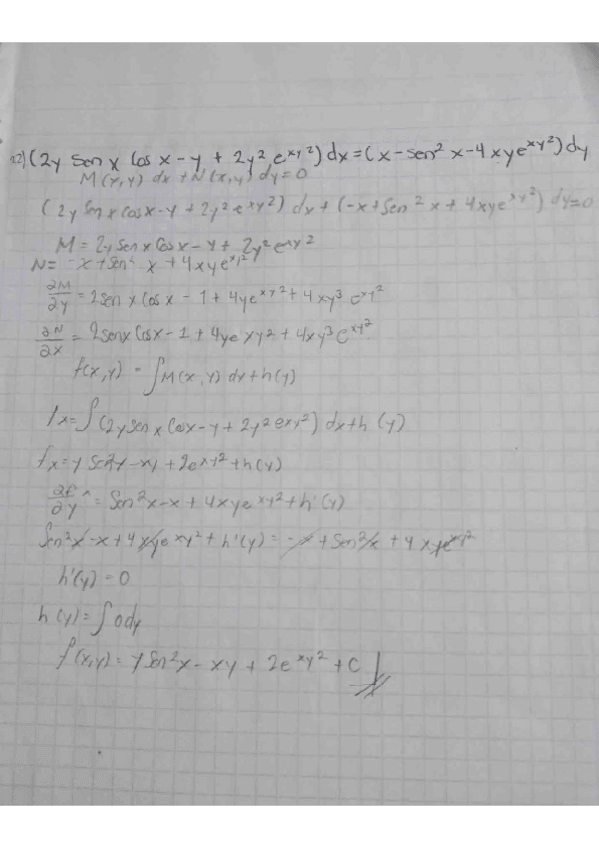 12) (2y sen x Cos x - y + 2y² e^xy²) dx = (x - sen² x - 4xye^xy²) dy
M(x,y) dx + N(x,y) dy = 0
(2y sen x cos x - y + 2y² e^xy²) dx + (-x + sen² x + 4xye^xy²) dy = 0
M = 2y sen x Cos x - y + 2y² e^xy²
N = -x + sen² x + 4xye^xy²
∂M/∂y = 2sen x Cos x - 1 + 4ye^xy² + 4xy³ e^xy²
∂N/∂x = 2senx Cos x - 1 + 4ye^xy² + 4xy³ e^xy²
f(x,y) = ∫M(x,y) dx + h(y)
fx = ∫(2y sen x Cos x - y + 2y² e^xy²) dx + h(y)
fx = y sen²x - xy + 2e^xy² + h(y)
∂f/∂y = Sen²x - x + 4xye^xy² + h'(y)
Sen²x - x + 4xye^xy² + h'(y) = -x + sen²x + 4xye^xy²
h'(y) = 0
h(y) = ∫0dy
f(x,y) = y sen²x - xy + 2e^xy² + C